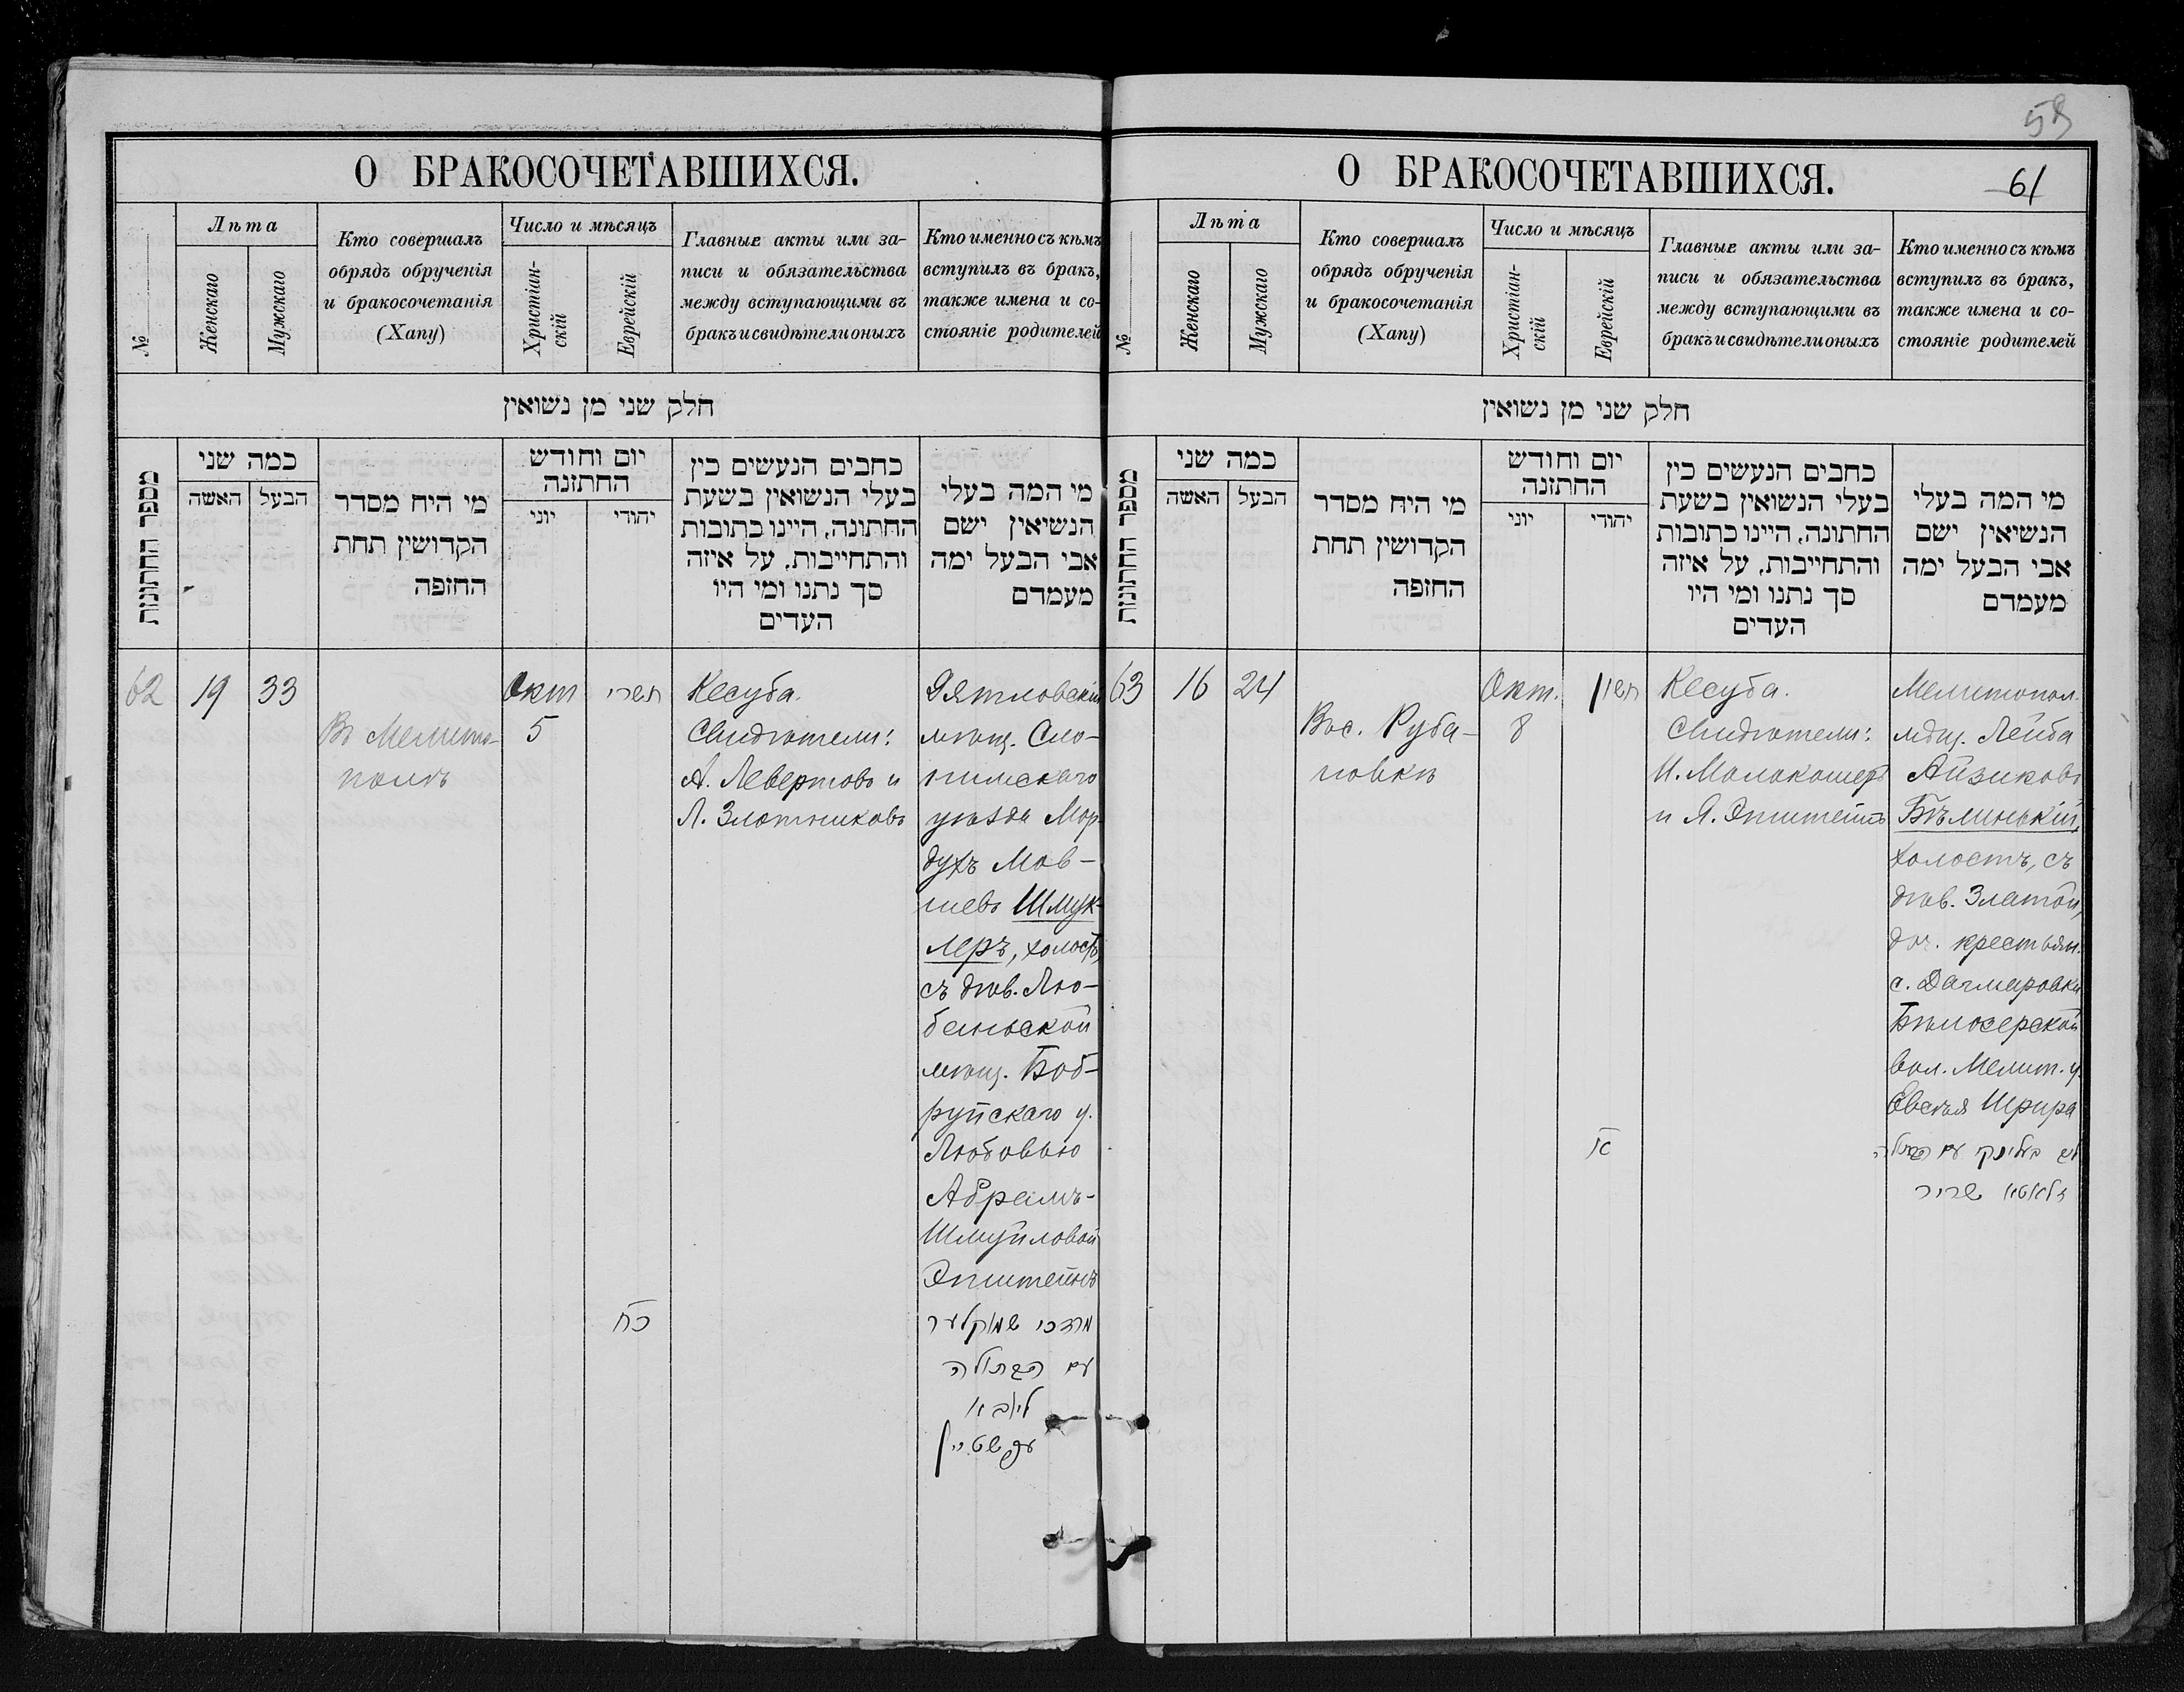 58
61
О БРАКОСОЧЕТАВШИХСЯ.
№
Лѣта
Женскаго
Мужскаго
Кто совершалъ
обрядъ обрученія
и бракосочетанія
(Хапу)
Число и мѣсяцъ
Христіан-
скій
Еврейскій
Главные акты или за-
писи и обязательства
между вступающими въ
бракъ и свидѣтели оныхъ
Кто именно съ кѣмъ
вступилъ въ бракъ,
также имена и со-
стояніе родителей
חלק שני מן נשואין
מספר החתונות
כמה שני
האשה
הבעל
מי היח מסדר
הקדושין תחת
החופה
יום וחודש
החתונה
יוני
יהודי
כחבים הנעשים כין
בעלי הנשואין בשעת
החתונה, היינו כתובות
והתחייבות, על איזה
סך נתנו ומי היו
העדים
מי המה בעלי
הנשיאין ישם
אבי הבעל ימה
מעמדם
62
19
33
Въ Мелито-
полѣ
Окт
5
תשרי
כח
Кесуба.
Свидѣтели:
А. Левертовъ и
Л. Злотниковъ
Дятловскій
мѣщ. Сло-
нимскаго
уѣзда Мор-
духъ Мов-
шевъ Шмук-
леръ, холостъ,
съ дѣв. Лю-
баньской
мѣщ. Боб-
руйскаго у.
Любовью
Абрамъ-
Шмуйловой
Эпштейнъ
מרדכי שמוקלער
עם הבתולה
ליובא
עפשטיין
О БРАКОСОЧЕТАВШИХСЯ.
№
Лѣта
Женскаго
Мужскаго
Кто совершалъ
обрядъ обрученія
и бракосочетанія
(Хапу)
Число и мѣсяцъ
Христіан-
скій
Еврейскій
Главные акты или за-
писи и обязательства
между вступающими въ
бракъ и свидѣтели оныхъ
Кто именно съ кѣмъ
вступилъ въ бракъ,
также имена и со-
стояніе родителей
חלק שני מן נשואין
מספר החתונות
כמה שני
האשה
הבעל
מי היח מסדר
הקדושין תחת
החופה
יום וחודש
החתונה
יוני
יהודי
כחבים הנעשים כין
בעלי הנשואין בשעת
החתונה, היינו כתובות
והתחייבות, על איזה
סך נתנו ומי היו
העדים
מי המה בעלי
הנשיאין ישם
אבי הבעל ימה
מעמדם
63
16
24
Въ с. Руба-
новкѣ
Окт.
8
Кесуба.
Свидѣтели:
И. Молокошеръ
и Я. Эпштейнъ
Мелитопол.
мѣщ. Лейба
Айзиковъ
Бѣлинькій,
холостъ, съ
дѣв. Златой,
доч. крестьян.
с. Дагмаровки
Бѣлосерской
вол. Мелит. у.
Евсѣя Шрира
בעלינקי עם הבתולה
זלאטא שריר